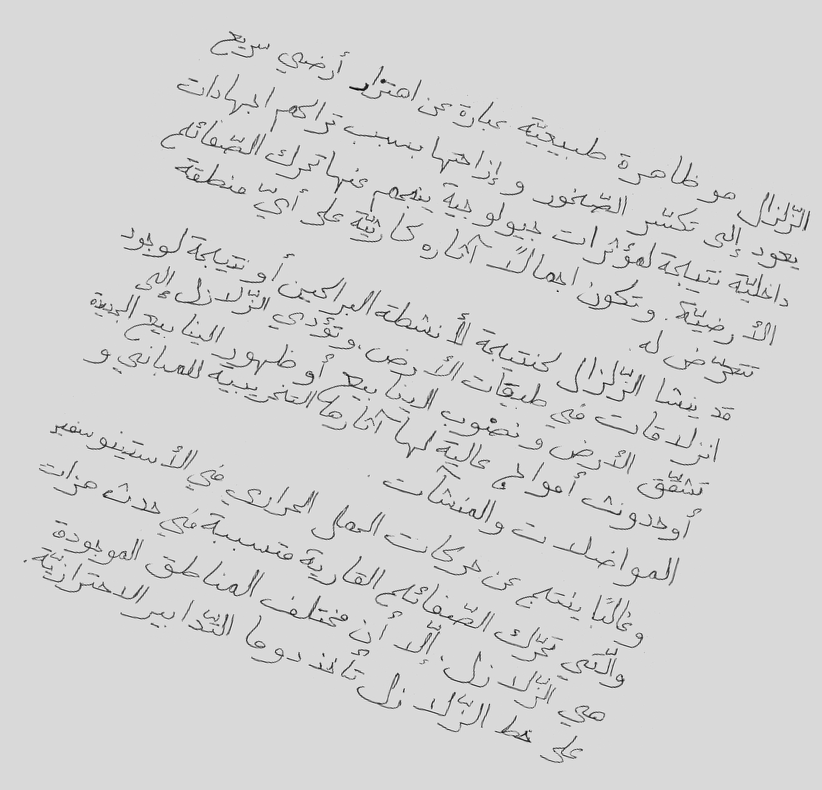 الزّلزال هو ظاهرة طبيعيّة عبارة عن اهتزاز أرضي سريع
يعود إلى تكسّر الصّخور و إزاحتها بسبب تراكم اجهادات
داخليّة نتيجة لمؤثرات جيولوجية ينجم عنها تحرك الصّفائح
الأرضيّة. وتكون اجمالاً آثاره كارثيّة على أيّ منطقة
تتعرّض له.
قد ينشأ الزّلزال كنتيجة لأنشطة البراكين أو نتيجة لوجود
انزلاقات في طبقات الأرض. وتؤدي الزّلازل إلى
تشقّق الأرض ونضوب الينابيع أو ظهور الينابيع الجديدة
أو حدوث أمواج عالية لها آثارها التخريبية للمباني و
المواصلات والمنشآت.
وغالبًا ينتج عن حركات الحمل الحراري في الأستينوسفير
والّتي تحرّك الصّفائح القارية متسببة في حدث هزات
هي الزّلازل. إلّا أن مختلف المناطق الموجودة
على خط الزّلازل تأخذ دوما التّدابير الاحترازيّة.